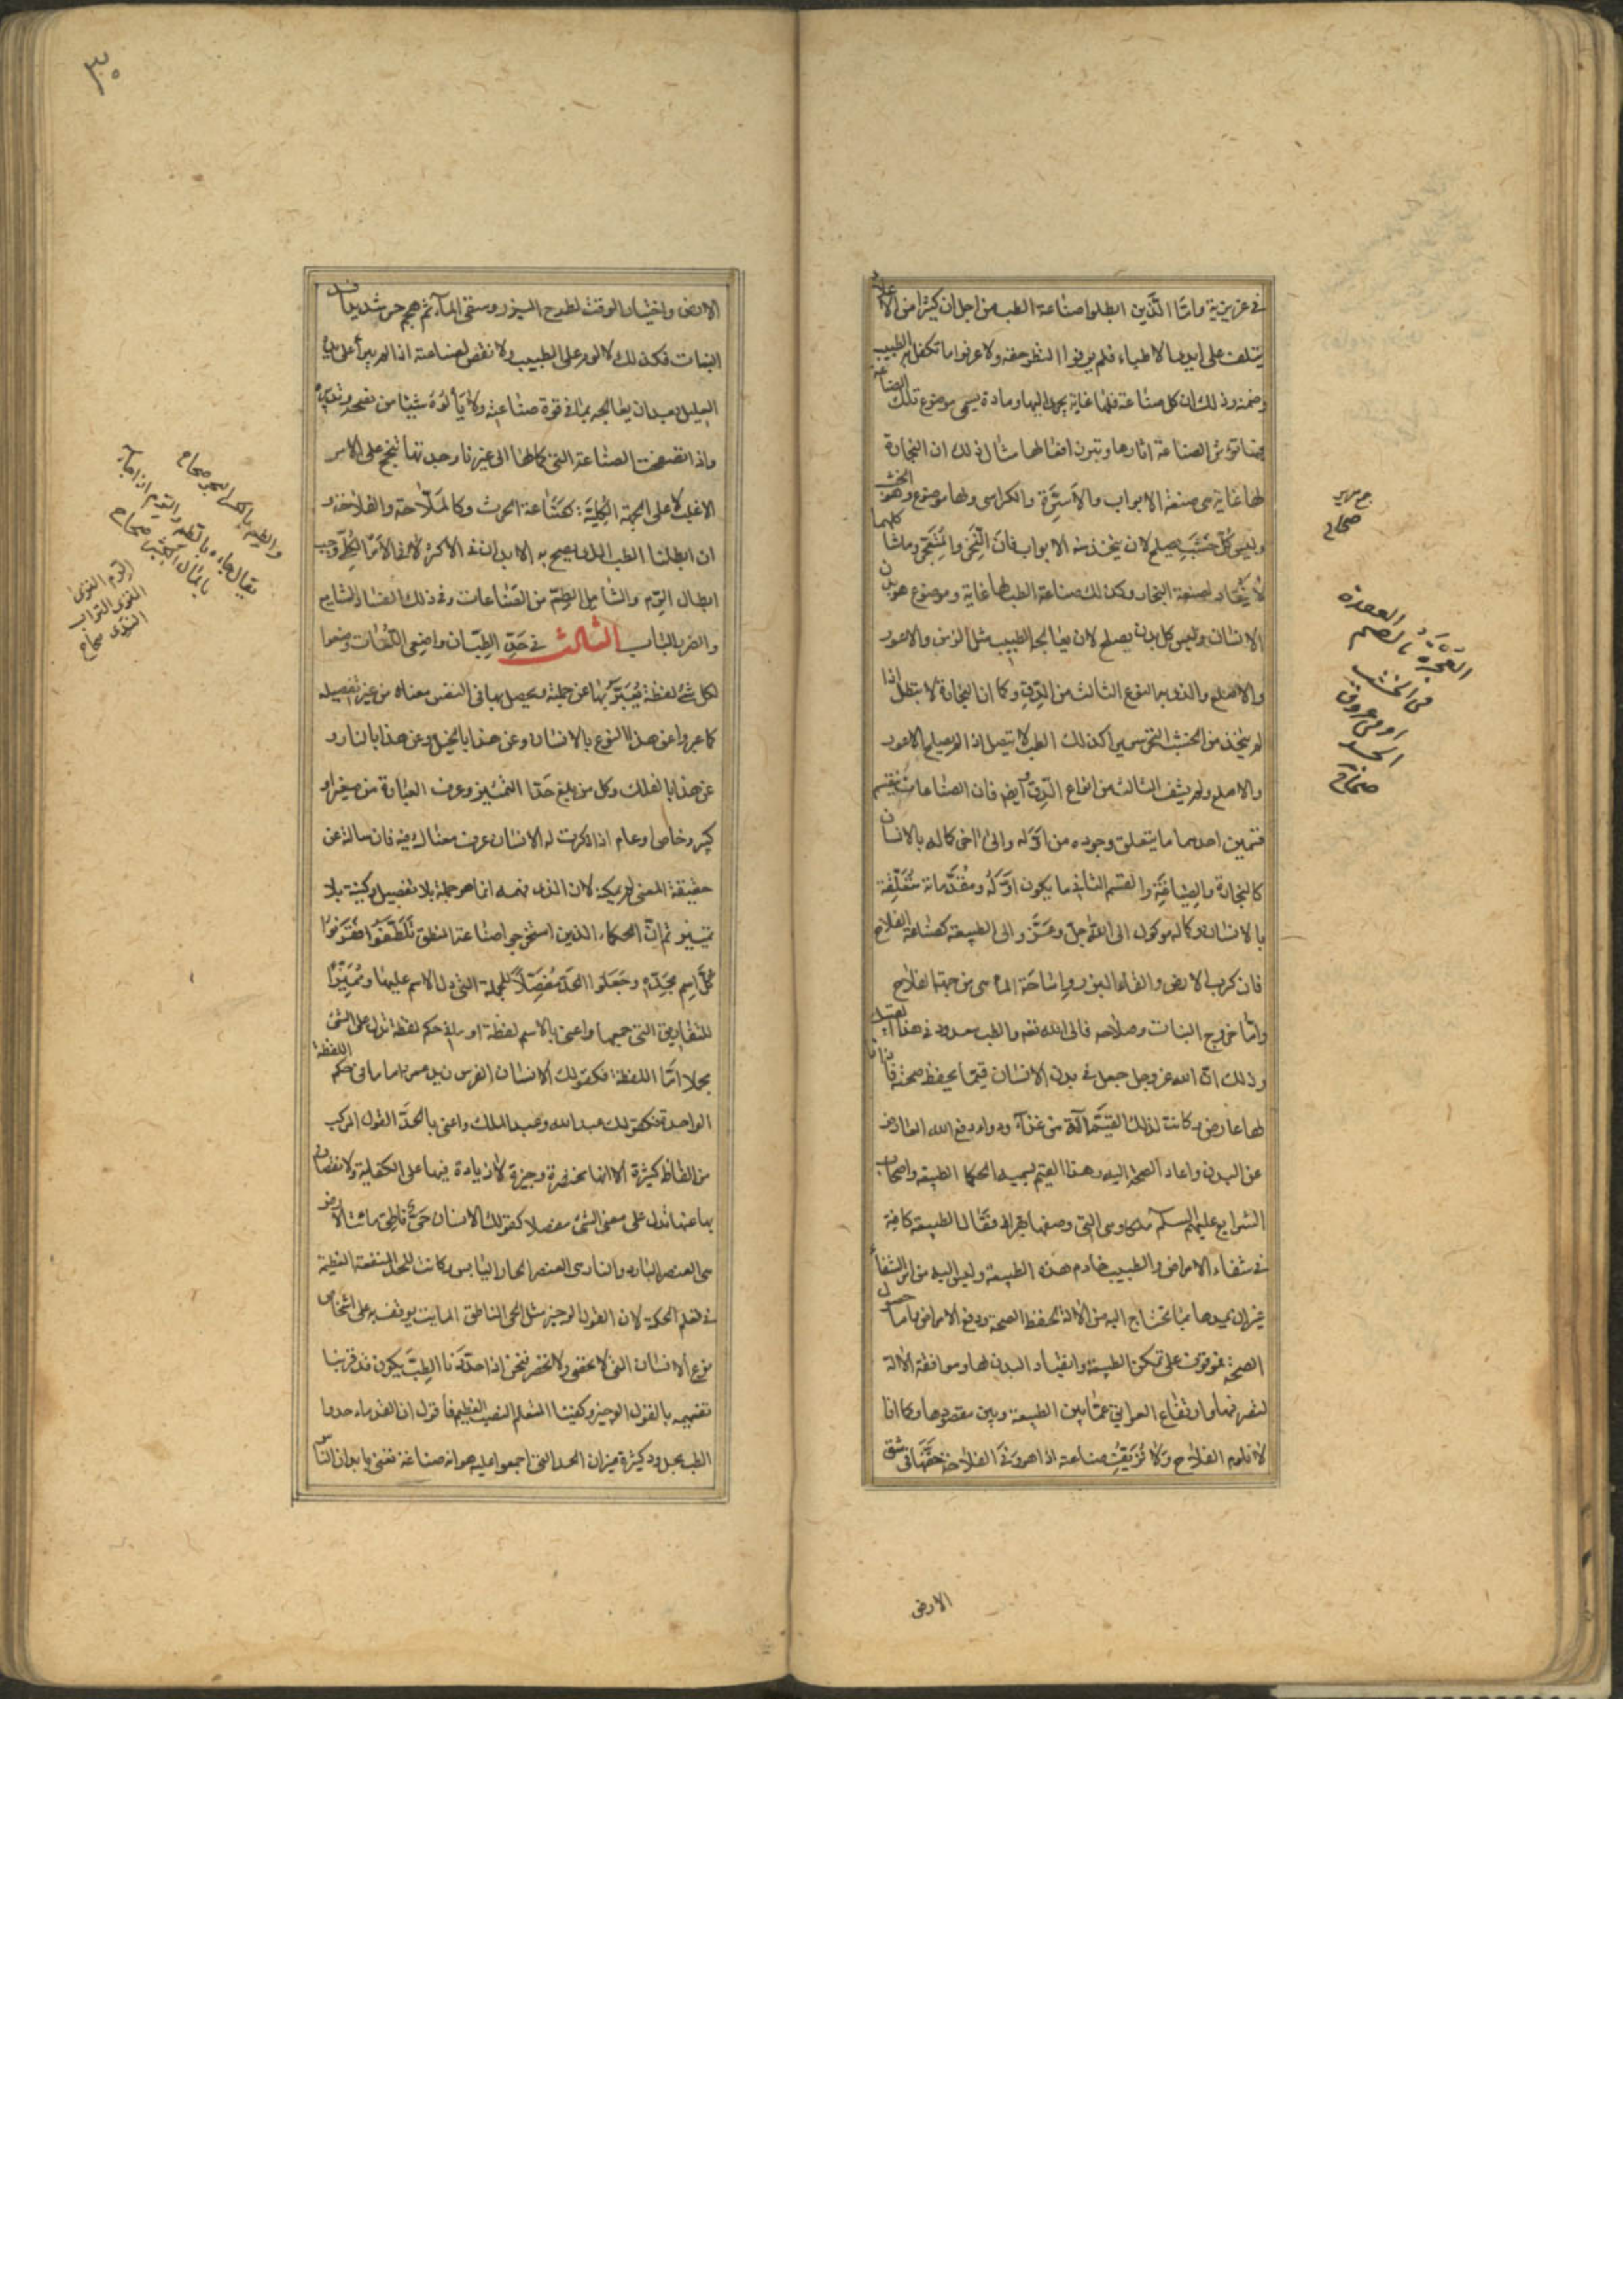 في غريزية واما الذين ابطلوا صناعة الطب من اجل ان كثيرا من الاعلاء
يتلف على ايدي الاطباء فلم يوفوا النظر حقه ولا عرفوا ما تكفل به الطبيب
وضمنه وذلك ان كل صناعة فلها غاية يجري اليها ومادة يسمى موضوع تلك الصناعة
فيها تؤثر الصناعة اثارها وتبرز افعالها مثال ذلك ان النجارة
لها غاية هي صنعة الابواب والاسرة والكراسي ولها موضوع وهو الخشب
وليس كل خشب يصلح لان يتخذ منه الابواب فان النخر والمتعجر وما شاكلهما
لا ينقاد لصنعة النجار وكذلك صناعة الطب لها غاية وموضوع هو بدن
الانسان وليس كل بدن يصلح لان يعالجه الطبيب مثل الزمن والاعور
والاصلع والذي به النوع الثالث من الدق وكما ان النجارة لا تبطل اذا
لم يتخذ من الخشب النخر سريرا كذلك الطب لا يبطل اذا لم يصلح الاعور
والاصلع ولم يشف الثالث من انواع الدق وايضا فان الصناعات تنقسم
قسمين احدهما ما يتعلق وجوده من اوله والى اخر كماله بالانسان
كالنجارة والصياغة والقسم الثاني ما يكون اوله ومقدماته متعلقة
بالانسان وكماله موكول الى الله جل وعز والى الطبيعة كصناعة الفلاح
فان كرب الارض والقاء البزر واساحة الماء هي من جهة الفلاح
واما خروج النبات وصلاحه فالى الله تعالى والطب معدود في هذا القسم
وذلك ان الله عز وجل جعل في بدن الانسان قيما يحفظ صحته فاذا نا
لها عارض وكانت لذلك القيم الة من غذاء ودواء دفع الله العارض
عن البدن واعاد الصحة اليه وهذا القيم يسميه الحكما الطبيعة واصحاب
الشرايع عليهم السلم ملكا وهي التي وصفها بقراط فقال الطبيعة كافية
في شفاء الامراض والطبيب خادم هذه الطبيعة وليس اليه من امر الشفاء
غير ان يمدها بما تحتاج اليه من الالة لحفظ الصحة ودفع الامراض فاما حصول
الصحة فموقوف على تمكن الطبيعة وانقياد البدن لها وموافقة الالة
لتصرفها وارتفاع العوائق عما بين الطبيعة وبين مقصودها وكما انا
لا نلوم الفلاح ولا نزيف صناعته اذا هو وفى الفلاحة حقها في شق
الارض
جمع سرير
صحاح
العجرة بالضم العقدة
في الخشب
او في عروق
الجسد
صحاح
٣٠
الارض واختيار الوقت لطرح البزور وسقي الماء ثم هجم حر شديد افسد
النبات فكذلك لا لوم على الطبيب ولا نقص لصناعته اذا لم يبرأ على يديه
العليل بعد ان يعالجه بما في قوة صناعته ولا يألوه شيئا من نصحه وتدبيره
واذ اتضحت الصناعة التي كمالها الى غيرنا وجدتها تنجح على الامر
الاغلب لا على الجهة الكلية كصناعة الحرث وكالملاحة والفلاحة و
ان ابطلنا الطب الذي يصح به الابدان في الاكثر لا في الامر الكلي وجب
ابطال الرم والشامل الطم من الصناعات وفي ذلك الفساد الشايع
والضرر الباب الثالث في حد الطب ان واضعي اللغات وضعوا
لكل شيء لفظة يعبر بها عن جملته ويحصل بها في النفس معناه من غير تفصيله
كما عبروا عن هذا النوع بالانسان وعن هذا بالخيل وعن هذا بالنار و
عن هذا بالفلك وكل من بلغ حد التمييز وعرف العبارة من صغير او
كبير وخاص وعام اذا ذكرت له الانسان عرف معناك فيه فان سالته عن
حقيقة المعنى لم يمكنه لان الذي فهمه انما هو جملة بلا تفصيل وكيفية بلا
تمييز ثم ان الحكماء الذين استخرجوا صناعة المنطق تلطفوا فقرنوا
كل اسم بحده وجعلوا الحد مفصلا للجملة التي دل الاسم عليها ومميزا
للتفاريق التي جمعها واعني بالاسم لفظة او ما في حكم لفظة تدل على الشئ
مجملا اما اللفظة فكقولك الانسان الفرس زيد عمرو اما ما في حكم اللفظة
الواحدة فكقولك عبد الله وعبد الملك واعني بالحد القول المركب
من الفاظ كثيرة الا انها مختصرة وجيزة لا زيادة فيها على الكفاية ولا نقصان
بها عنها تدل على معنى الشئ مفصلا كقولك الانسان حي ناطق مائت الارض
هي العنصر البارد والنار هي العنصر الحار اليابس وكانت للحد المنفعة العظيمة
في تعلم الحكمة لان القول الوجيز مثل الحي الناطق المايت يوقفه على اشخاص
نوع الانسان التي لا تحصى ولا تحصر فنحن اذا حددنا الطب يكون قد قربنا
تفهيمه بالقول الوجيز وكفينا المتعلم النصب العظيم فاقول ان القدماء حدوا
الطب بحدود كثيرة غير ان الحد الذي اجمعوا عليه هو انه صناعة تعنى بابدان الناس
والطم بالكسر البحر صحاح
يقال جاء بالطم والرم اذا جاء
بالمال الكثير صحاح
الرم الثرى
الثرى التراب
الندي صحاح